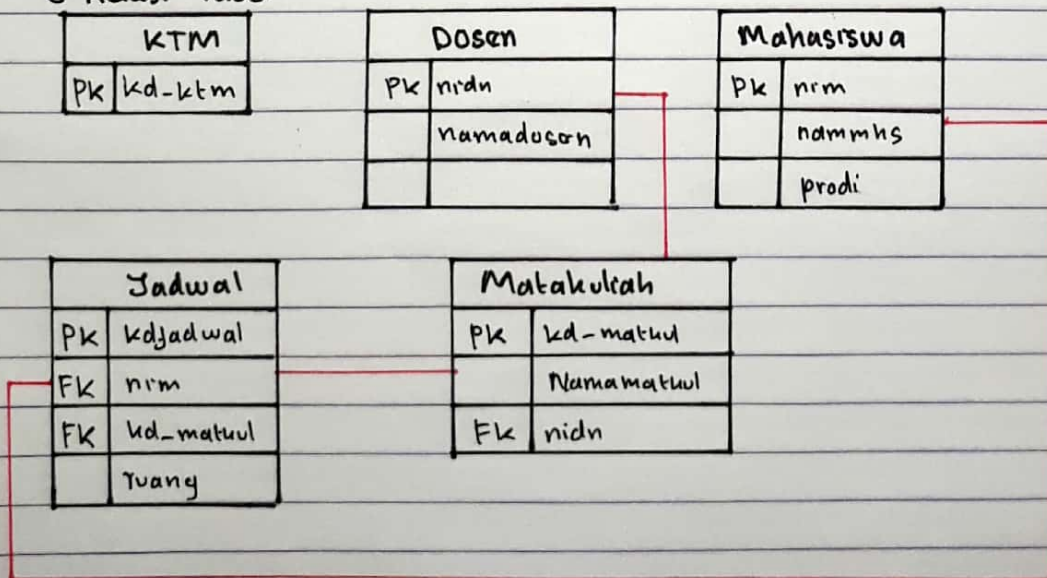 KTM
PK kd-ktm
Dosen
PK nidn
namadosen
Mahasiswa
PK nim
nammhs
prodi
Jadwal
PK kdjadwal
FK nim
FK kd_matkul
ruang
Matakuliah
PK kd-matkul
Namamatkul
FK nidn